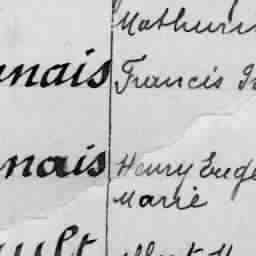 Mathurin
nais Francis
nais Henry Euge
Marie
ult